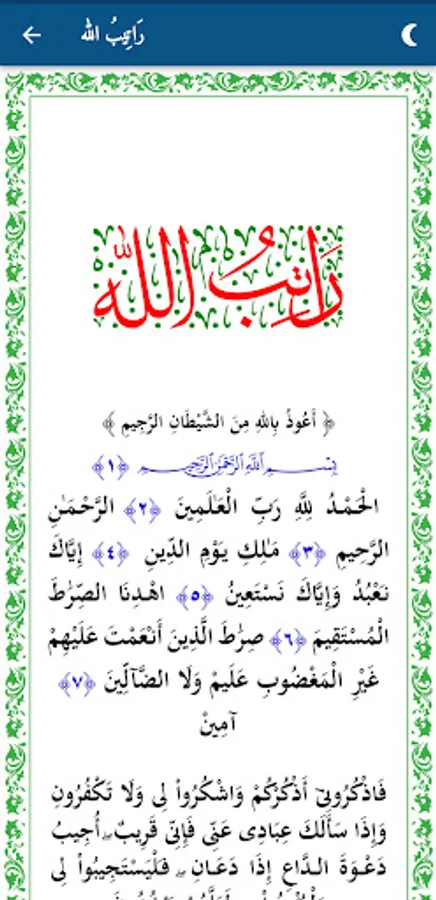 رَاتِبُ الله
رَاتِبُ اللَّه
﴿ أَعُوذُ بِاللهِ مِنَ الشَّيْطَانِ الرَّجِيمِ ﴾
بِسْمِ اللَّهِ الرَّحْمَٰنِ الرَّحِيمِ ﴿١﴾
الْحَمْدُ لِلَّهِ رَبِّ الْعَٰلَمِينَ ﴿٢﴾ الرَّحْمَٰنِ
الرَّحِيمِ ﴿٣﴾ مَٰلِكِ يَوْمِ الدِّينِ ﴿٤﴾ إِيَّاكَ
نَعْبُدُ وَإِيَّاكَ نَسْتَعِينُ ﴿٥﴾ اهْدِنَا الصِّرَٰطَ
الْمُسْتَقِيمَ ﴿٦﴾ صِرَٰطَ الَّذِينَ أَنْعَمْتَ عَلَيْهِمْ
غَيْرِ الْمَغْضُوبِ عَلَيْهِمْ وَلَا الضَّآلِّينَ ﴿٧﴾
آمِينْ
فَاذْكُرُونِىٓ أَذْكُرْكُمْ وَاشْكُرُواْ لِى وَلَا تَكْفُرُونِ
وَإِذَا سَأَلَكَ عِبَادِى عَنِّى فَإِنِّى قَرِيبٌ ۖ أُجِيبُ
دَعْوَةَ الدَّاعِ إِذَا دَعَانِ ۖ فَلْيَسْتَجِيبُواْ لِى